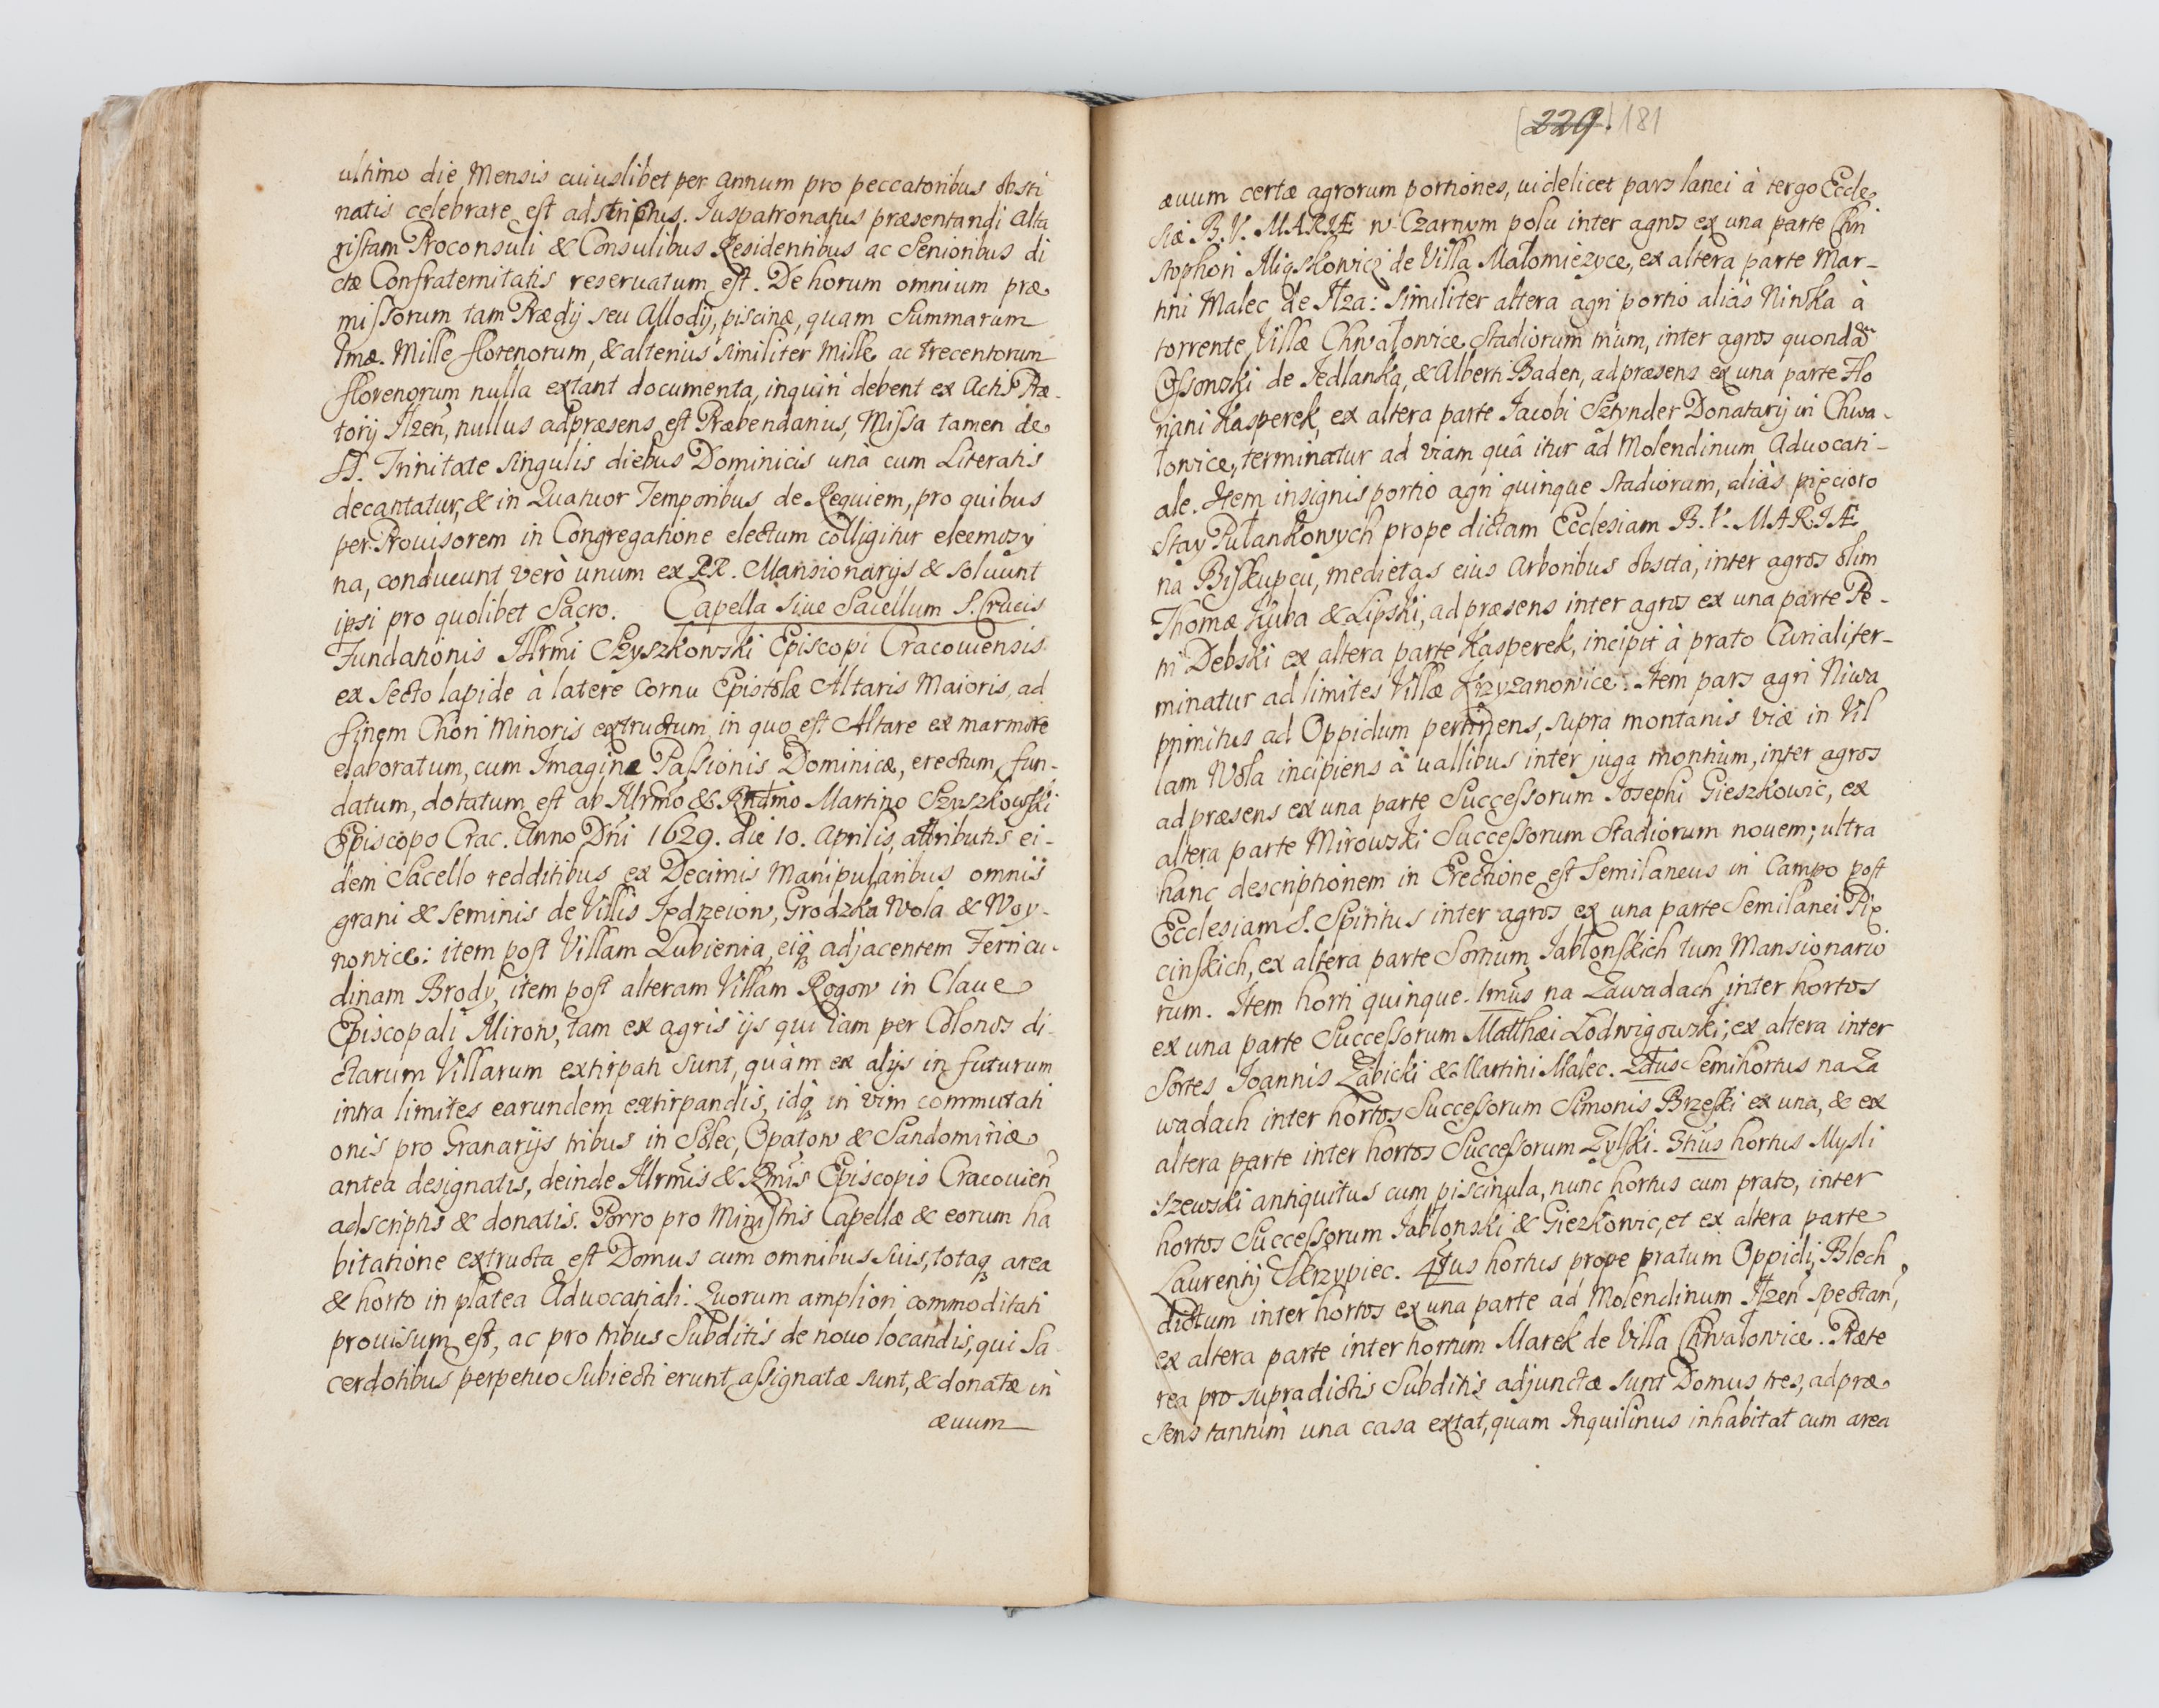 ultimo die Mensis cuiuslibet per annum pro peccatoribus obsti
natis celebrare est adstrictus. Iuspatronatus præsentandi Alta
ristam Proconsuli & Consulibus Residentibus ac Senioribus di
ctæ Confraternitatis reservatum est. De horum omnium præ
missorum tam Prædij seu Allodij, piscinæ, quam Summarum
Imæ. Mille florenorum, & alterius similiter Mille ac trecentorum
florenorum nulla extant documenta, inquiri debent ex Actis Præ-
torij Ilzen̄, nullus adpræsens est Præbendarius, Missa tamen de
SS. Trinitate singulis diebus Dominicis unà cum Literatis
decantatur, & in Quatuor Temporibus de Requiem, pro quibus
per Prouisorem in Congregatione electum colligitur eleemosy
na, conducunt verò unum ex RR. Mansionarijs & soluunt
ipsi pro quolibet Sacro. Capella siue Sacellum S. Crucis
Fundationis Illrm̄i Szyszkowski Episcopi Cracouiensis
ex secto lapide à latere cornu Epistolæ Altaris Maioris, ad
finem Chori Minoris extructum, in quo est Altare ex marmore
elaboratum, cum Imagine Passionis Dominicæ, erectum, fun-
datum, dotatum est ab Illrm̄o & Rndm̄o Martino Szyszkowski
Episcopo Crac. Anno Dn̄i 1629. die 10. Aprilis, attributis ei-
dem Sacello redditibus ex Decimis Manipularibus omnis
grani & seminis de Villis Jędrzeiow, Grodzka Wola & Woy-
nowice: item post Villam Lubienia, eiq3 adjacentem Ferricu-
dinam Brody, item post alteram Villam Rogow in Claue
Episcopali Mirow, tam ex agris ijs qui iam per Colonos di-
ctarum Villarum extirpati sunt, quàm ex alijs in futurum
intra limites earundem extirpandis, idq3 in vim commutati
onis pro Granarijs tribus in Solec, Opatow & Sandomiriæ
antea designatis, deinde Illrm̄is & Rm̄is Episcopis Cracouien̄
adscriptis & donatis. Porro pro Ministris Capellæ & eorum ha
bitatione extructa est Domus cum omnibus suis, totaq3 area
& horto in platea Aduocatiali: Quorum ampliori commoditati
prouisum est, ac pro tribus Subditis de nouo locandis, qui Sa
cerdotibus perpetuo Subiecti erunt assignatæ sunt, & donatæ in
æuum
229. 181
æuum certæ agrorum portiones, uidelicet pars lanei à tergo Eccle
siæ B. V. MARIÆ w Czarnym polu inter agros ex una parte Chri
stophori Miąskowicz de Villa Małomiezyce, ex altera parte Mar-
tini Malec de Ilza: similiter altera agri portio aliàs Niwka à
torrente Villæ Chwałowice Stadiorum trium, inter agros quondā
Ossowski de Jedlanką, & Alberti Baden, adpræsens ex una parte Flo
riani Kasperek, ex altera parte Jacobi Sztynder Donatarij in Chwa-
łowice, terminatur ad viam quâ itur ad Molendinum Aduocati-
ale. Item insignis portio agri quinque stadiorum, aliàs pięcioro
Stay Pułankowych prope dictam Ecclesiam B. V. MARIÆ
na Biskupcu, medietas eius Arboribus obsita, inter agros olim
Thomæ Kuba & Lipski, ad præsens inter agros ex una parte Pe-
tri Debski ex altera parte Kasperek, incipit à prato Curiali ter-
minatur ad limites Villæ Krzyżanowice. Item pars agri Niwa
primitus ad Oppidum pertinens, supra montanis viæ in Vil
lam Wola incipiens à uallibus inter juga montium, inter agros
ad præsens ex una parte Successorum Josephi Gieszkowic, ex
altera parte Mirowski Successorum Stadiorum nouem; ultra
hanc descriptionem in Erectione est Semilaneus in Campo post
Ecclesiam S. Spiritus inter agros ex una parte Semilanei Pię
cinskich, ex altera parte Sortium Jabłonskich tum Mansionario
rum. Item horti quinque. 1mūs na Zawadach inter hortos
ex una parte Successorum Matthæi Lodwigowski; ex altera inter
Sortes Joannis Zabicki & Martini Malec. 2dus Semihortus na Za
wadach inter hortos Successorum Simonis Brzeski ex una, & ex
altera parte inter hortos Successorum Zylski. 3tius hortus Mysli
szewski antiquitus cum piscinula, nunc hortus cum prato, inter
hortos Successorum Jabłonski & Giezkowic, et ex altera parte
Laurentij Skrzypiec. 4tus hortus prope pratum Oppidi, Blech
dictum inter hortos ex una parte ad Molendinum Ilzen̄ spectan̄,
ex altera parte inter hortum Marek de Villa Chwałowice. Præte
rea pro supradictis Subditis adjunctæ sunt Domus tres, ad præ
sens tantùm una casa extat, quam Inquilinus inhabitat cum area